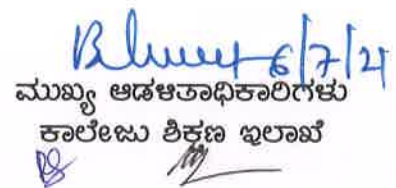 6/7/21
ಮುಖ್ಯ ಆಡಳಿತಾಧಿಕಾರಿಗಳು
ಕಾಲೇಜು ಶಿಕ್ಷಣ ಇಲಾಖೆ